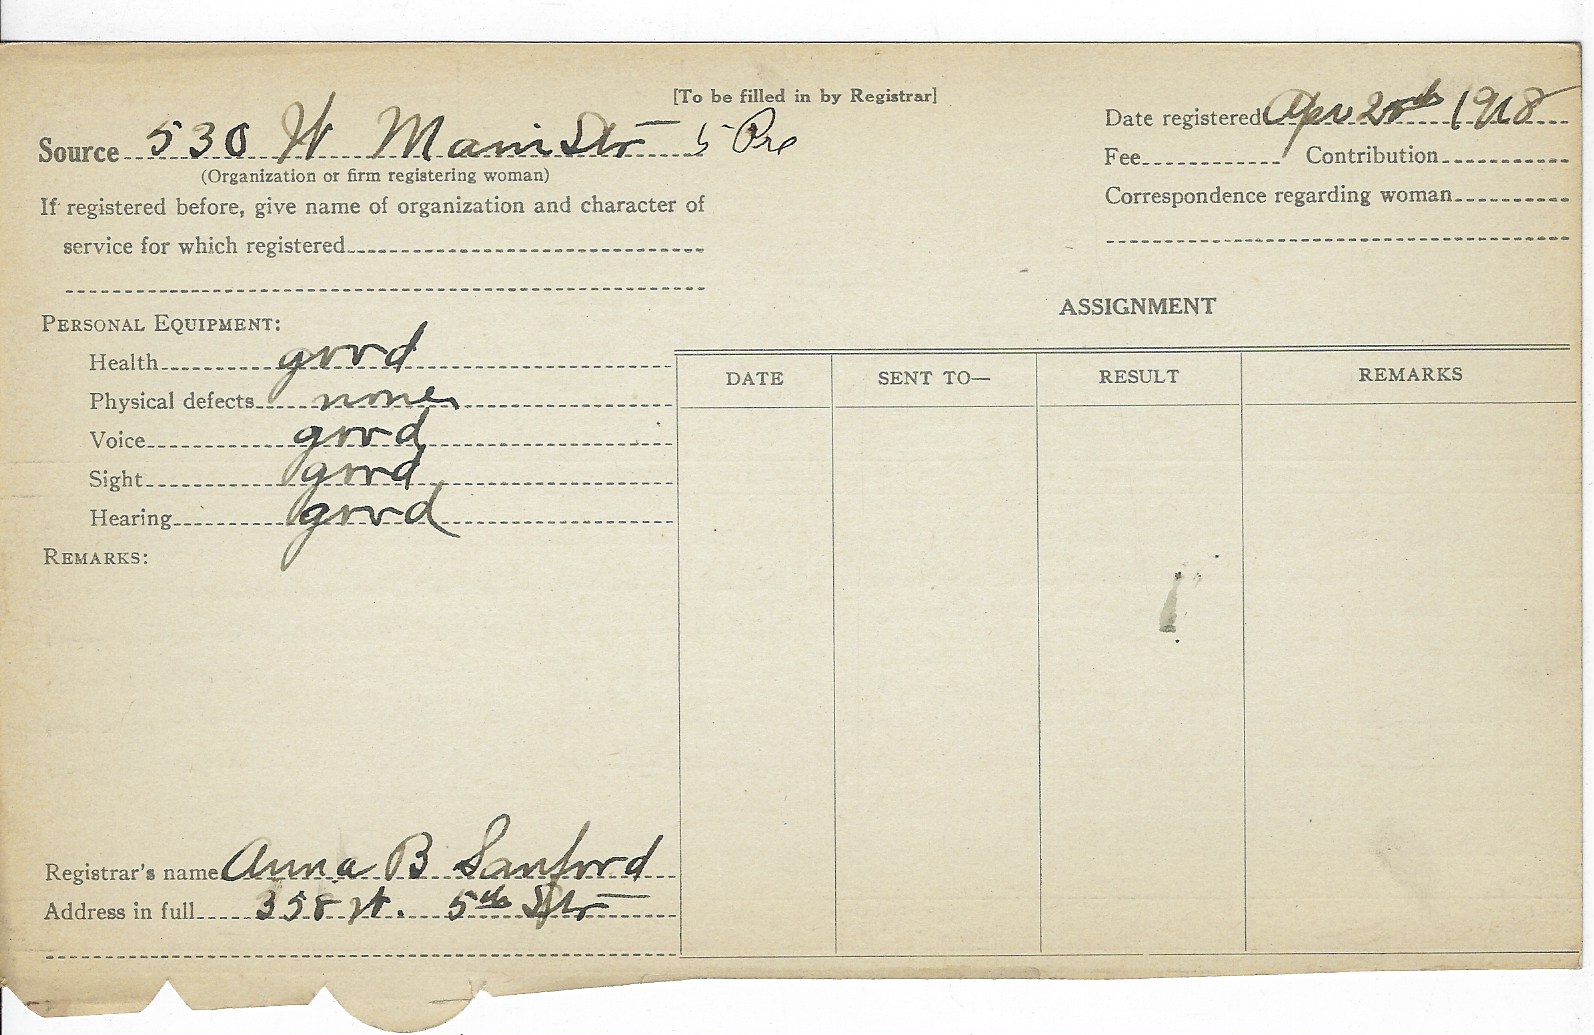 [To be filled in by Registrar]
Source 530 W Main Str 5 Pre
(Organization or firm registering woman)
If registered before, give name of organization and character of
service for which registered
Date registered Apr 1918
Fee Contribution
Correspondence regarding woman
PERSONAL EQUIPMENT:
Health good
Physical defects none
Voice good
Sight good
Hearing good
REMARKS:
Registrar's name Anna B Sanford
Address in full 358 W. 5th Str
ASSIGNMENT
DATE SENT TO— RESULT REMARKS